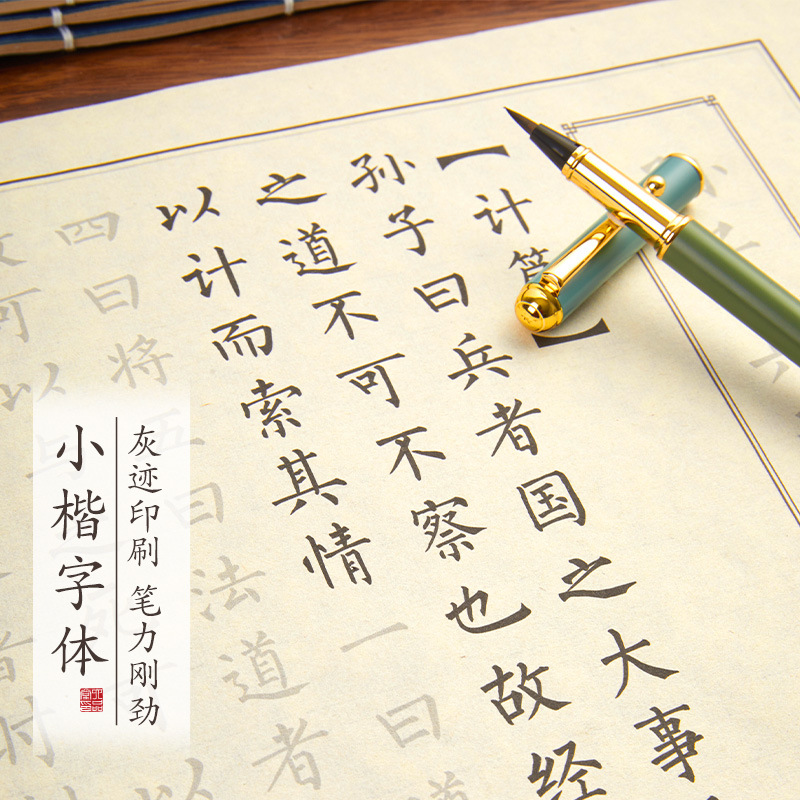 【计篇】
孙子曰兵者国之大事
之道不可不察也故经
以计而索其情
一曰道
四曰将五曰法道者
可以与
小楷字体
灰迹印刷 笔力刚劲